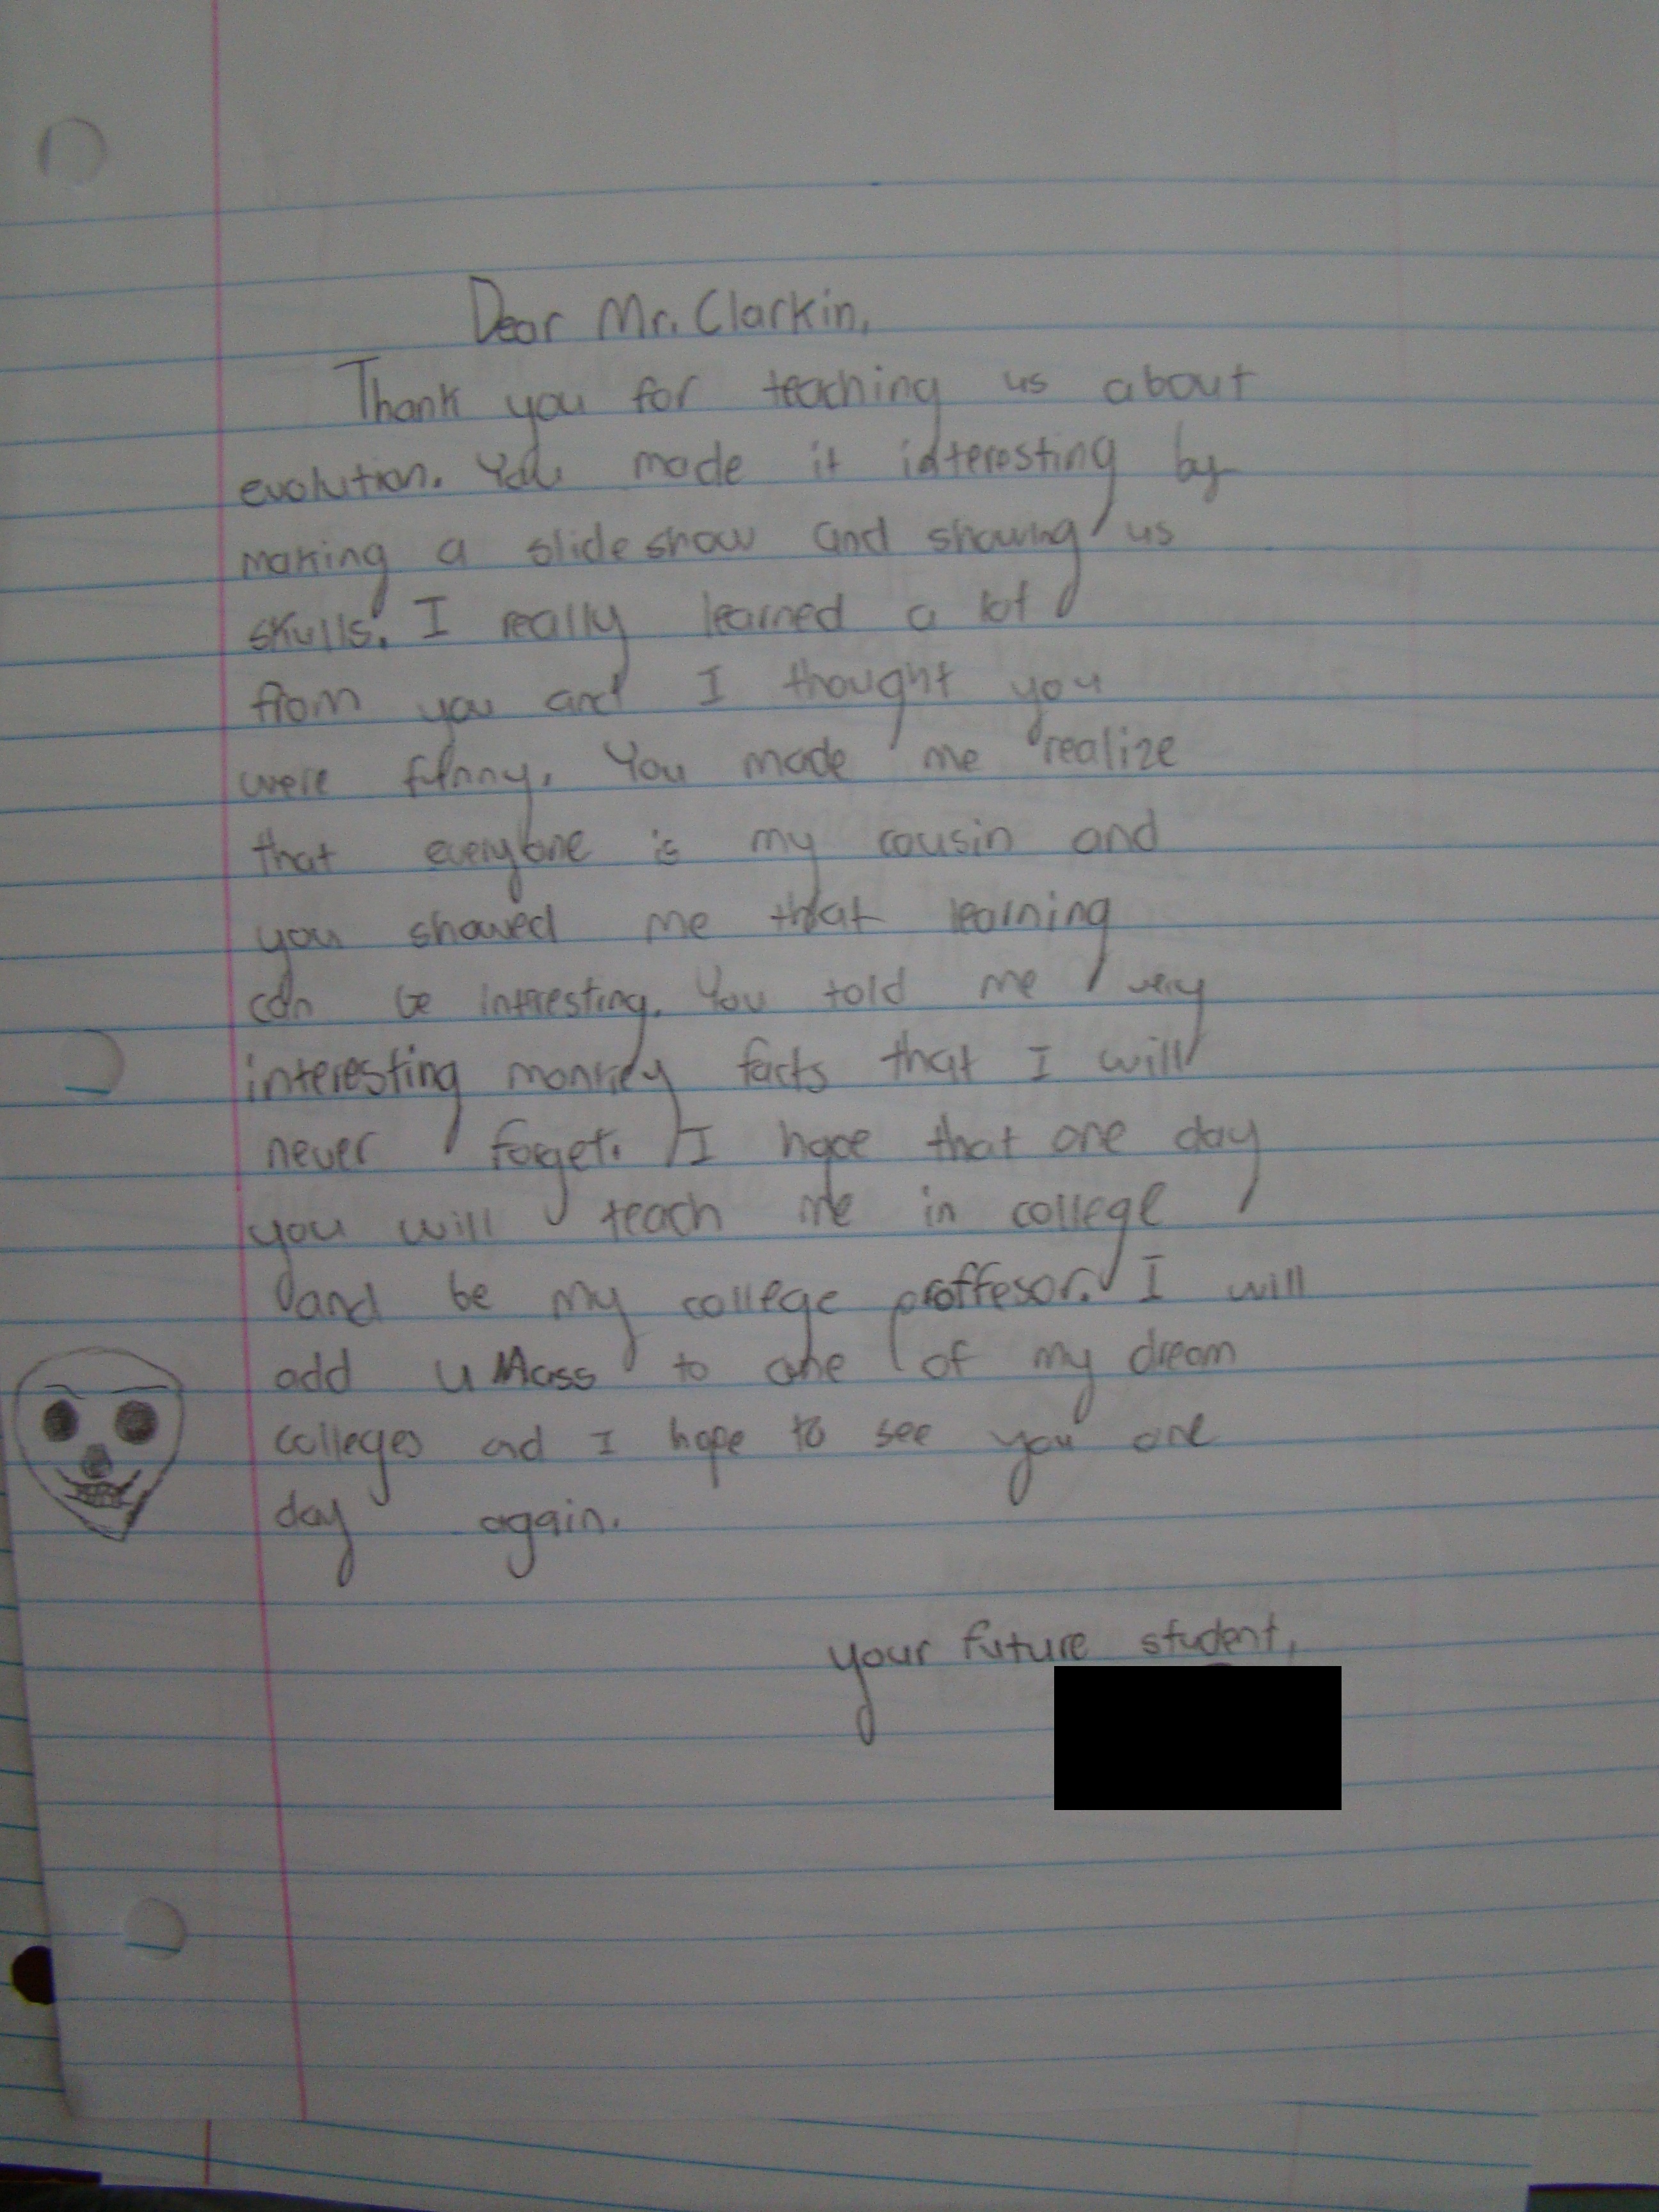 Dear Mr. Clarkin,
Thank you for teaching us about
evolution. You made it interesting by
making a slide show and showing us
skulls. I really learned a lot
from you and I thought you
were funny. You made me realize
that everyone is my cousin and
you showed me that learning
can be interesting. You told me very
interesting monkey facts that I will
never forget. I hope that one day
you will teach me in college
and be my college proffesor. I will
add U Mass to one of my dream
colleges and I hope to see you one
day again.
your future student,